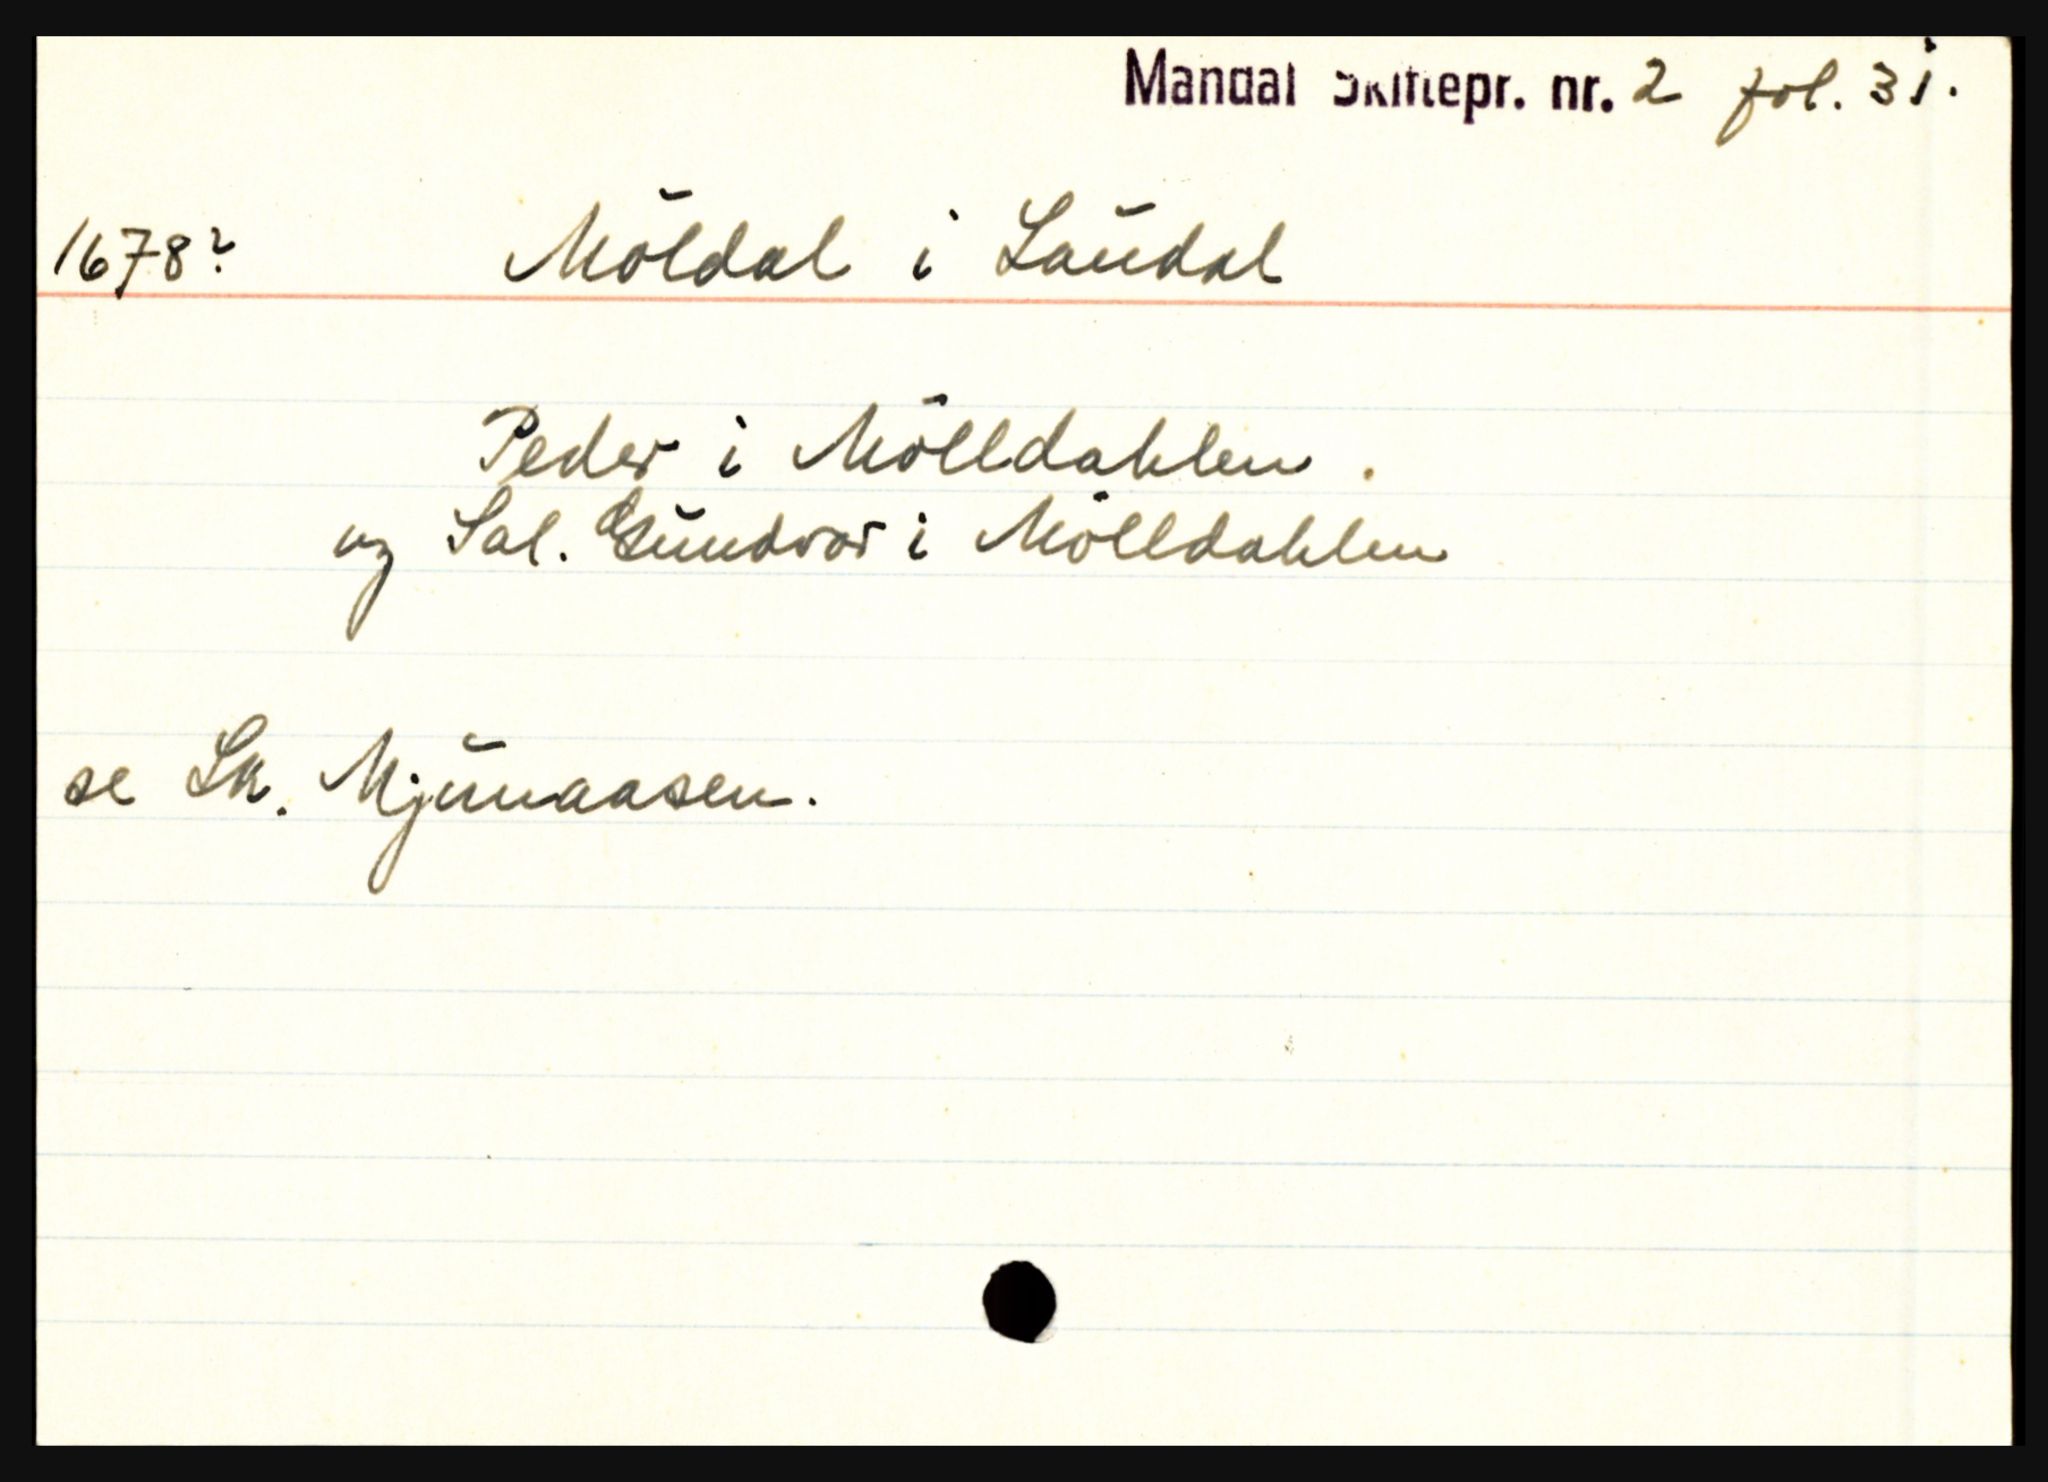 Mandal Skiftepr. nr. 2 fol. 31.
1678? Möldal i Laudal
Peder i Mölldahlen.
og Sal. Gundvor i Mölldahlen
se Sk. Mjunaasen.